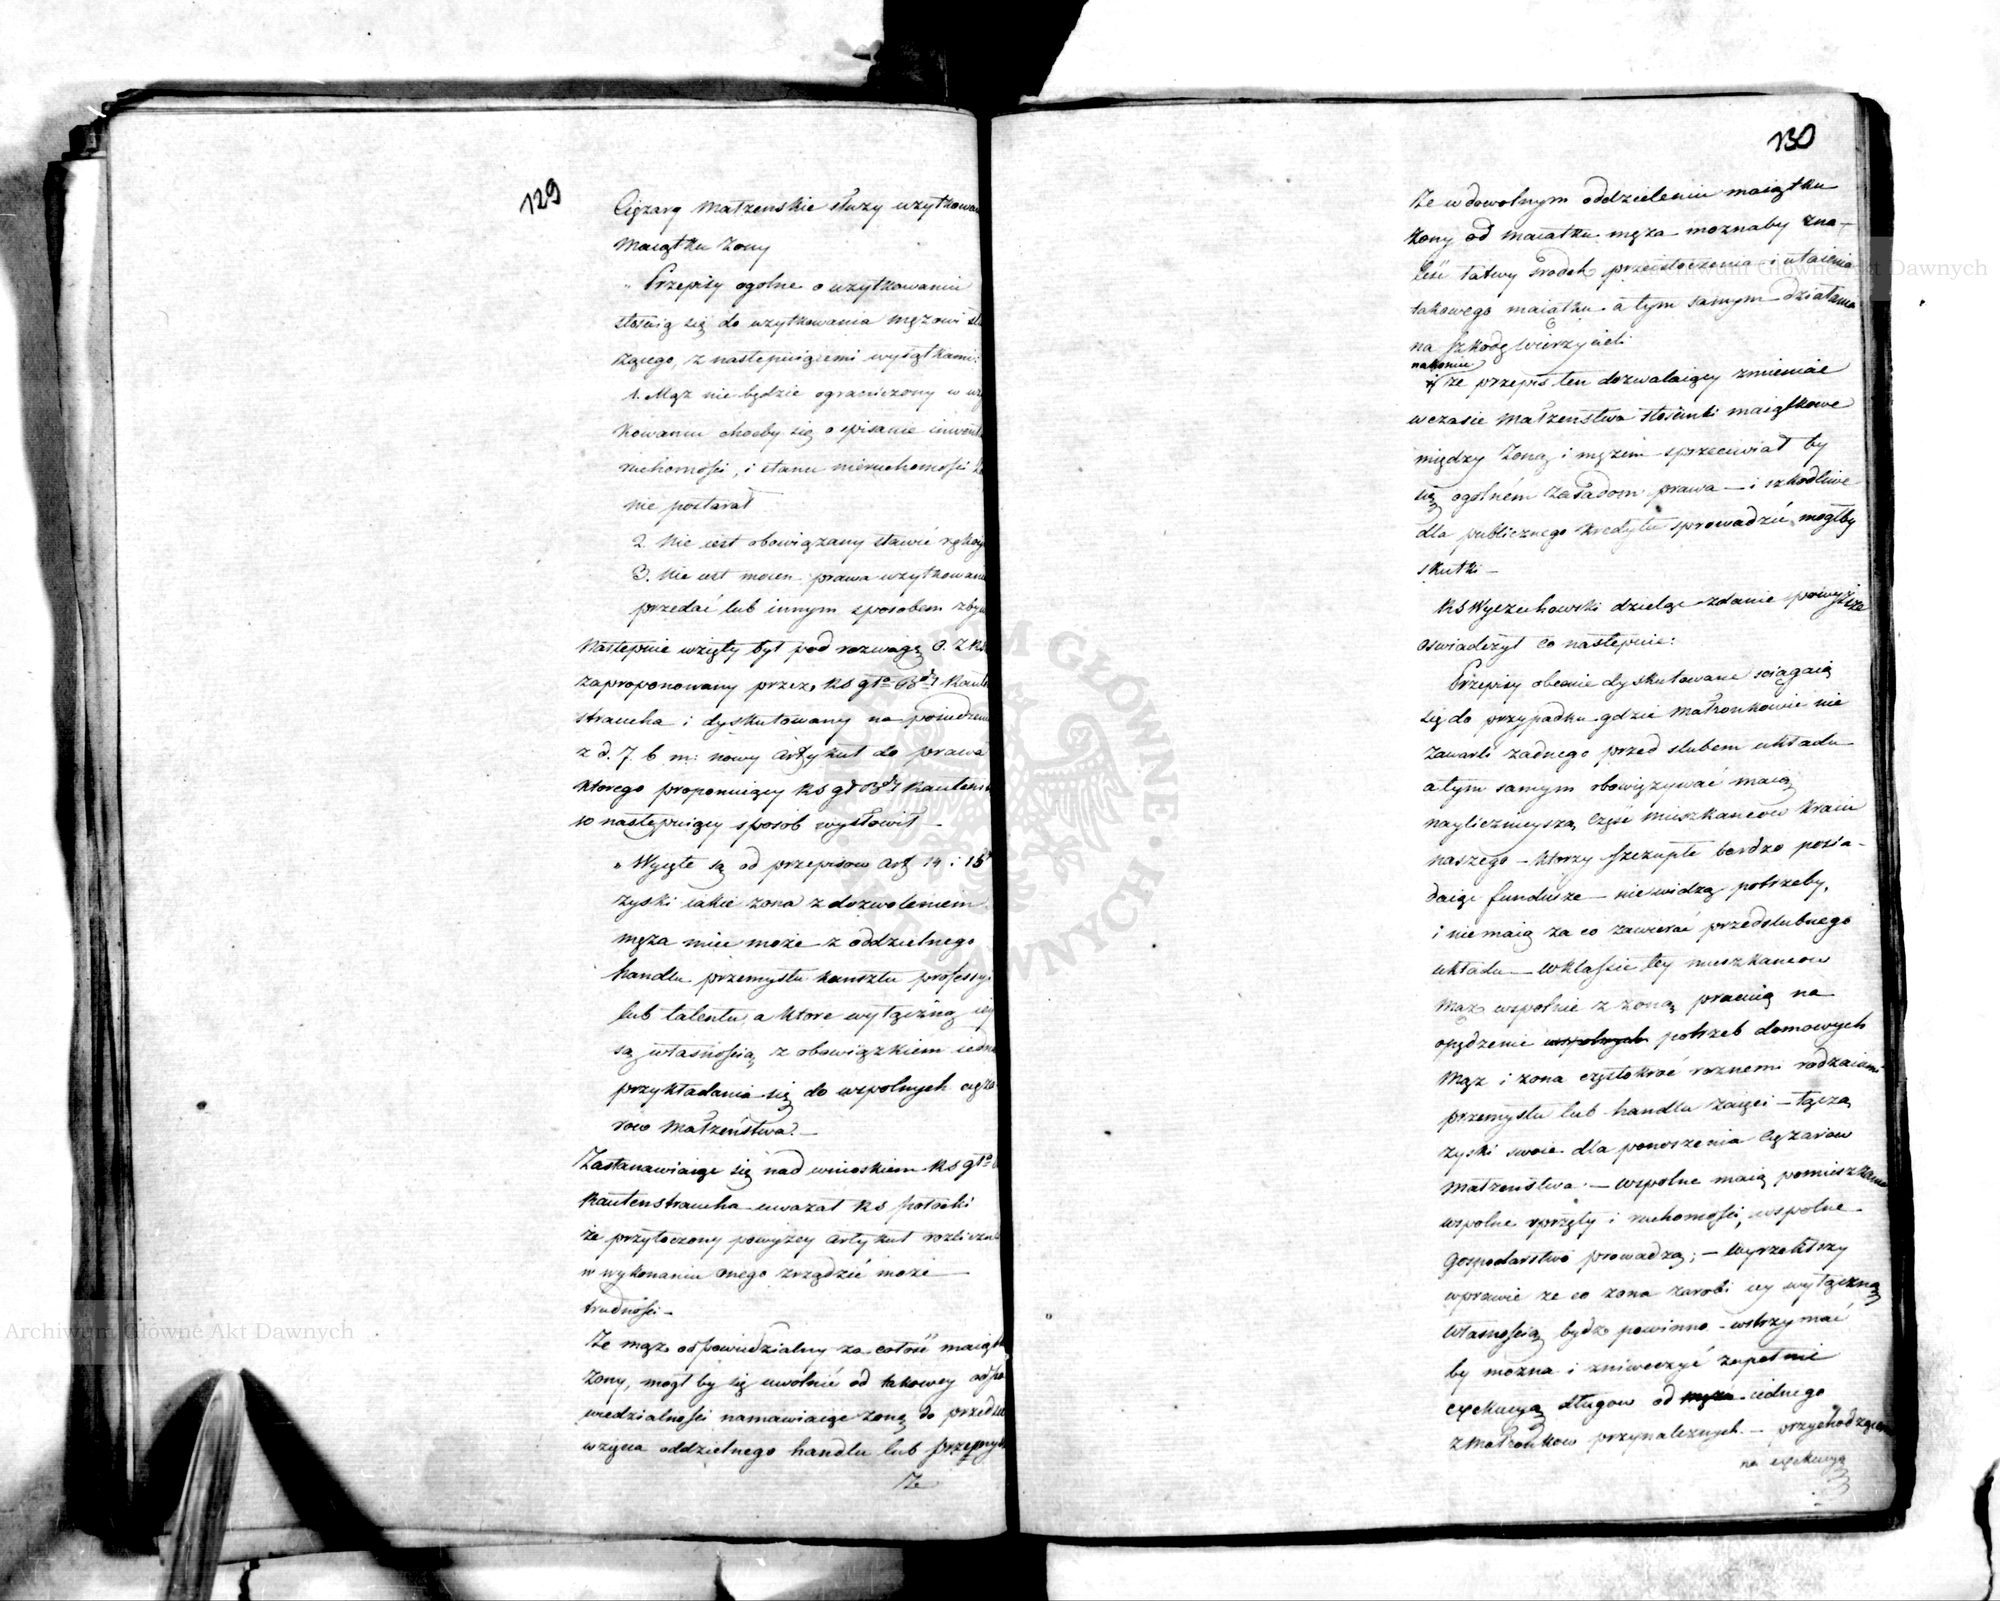 129
Ciężary Małżenskie służy uzytkowan
Maiątku Żony
„ Przepisy ogolne o uzytkowaniu
stosuią się do uzytkowania mężowi słu
żącego, z następuiącemi wyiątkami:
1. Mąż nie będzie ograniczony w uzy
kowaniu choćby się o spisanie inwent
ruchomości, i stanu nieruchomości
nie postarał
2. Nie iest obowiązany stawić rękoy
3. Nie iest mocen prawa uzytkowani
przedać lub innym sposobem zby
Następnie wzięty był pod rozwagę
zaproponowany przez RS gło Bdy Rauten
straucha i dyskutowany na posiedzeni
z d. 7. b m: nowy Artykuł do prawa
ktorego proponuiący RS gł Bdy Rautens
w następuiący sposob wysłowił –
„ Wyięte są od przepisow Art 14 i 15
zyski iakie żona z dozwoleniem
męża mieć może z oddzielnego
handlu przemysłu kunsztu professyi
lub talentu, a ktore wyłączną iey
są własnością z obowiązkiem iedna
przykładania się do wspolnych cięża
row Małżeństwa. –
Zastanawiaiąc się nad wnioskiem RS gło
Rautenstraucha uważał RS Potocki
że przytoczony powyżey Artykuł rozliczne
w wykonaniu onego zrządzić może
trudności –
Że mąż odpowiedzialny za całość maiątk
Żony, mogł by się uwolnić od takowey odpo
wiedzialności namawiaiąc żonę do przedsię
wzięcia oddzielnego handlu lub przemys
Że
130
Że w dowolnym oddzieleniu maiątku
żony od maiątku męża możnaby zna-
leść łatwy srodek przeistoczenia i utaienia
takowego maiątku a tym samym działania
na szkodę wierzycieli
nakoniec
iż że przepis ten dozwalaiący zmieniać
w czasie Małżenstwa stosunki maiątkowe
między Żoną i mężem sprzeciwiał by
się ogolném zasadom prawa – i szkodliwe
dla publicznego kredytu sprowadzić mogłby
skutki –
RS Wyczechowski dzieląc zdanie powyższe
oswiadczył co następuie:
Przepisy obecnie dyskutowane sciągaią
się do przypadku gdzie Małżonkowie nie
zawarli żadnego przed slubem układu
a tym samym obowiązywać maią
naylicznieyszą część mieszkancow kraiu
naszego – ktorzy szczupłe bardzo posia-
daiąc fundusze – nie widzą potrzeby,
i nie maią za co zawierać przedslubnego
układu – w klassie tey mieszkancow
Mąż wspolnie z żoną pracuią na
opędzenie wspolnych potrzeb domowych
Mąż i żona częstokroć roznemi rodzaiami
przemysłu lub handlu zaięci – łączą
zyski swoie dla ponoszenia Ciężarow
Małżenstwa – wspolne maią pomieszkanie
wspolne sprzęty i ruchomości, wspolne
Gospodarstwo prowadzą; – Wyrzekłszy
w prawie że co żona zarobi iey wyłączną
własnością bydź powinno – wstrzymać
by można i zniweczyć zupełnie
exekucyą długow od męża iednego
z Małżonkow przynależnych. – przychodzącemu
na exekucyą